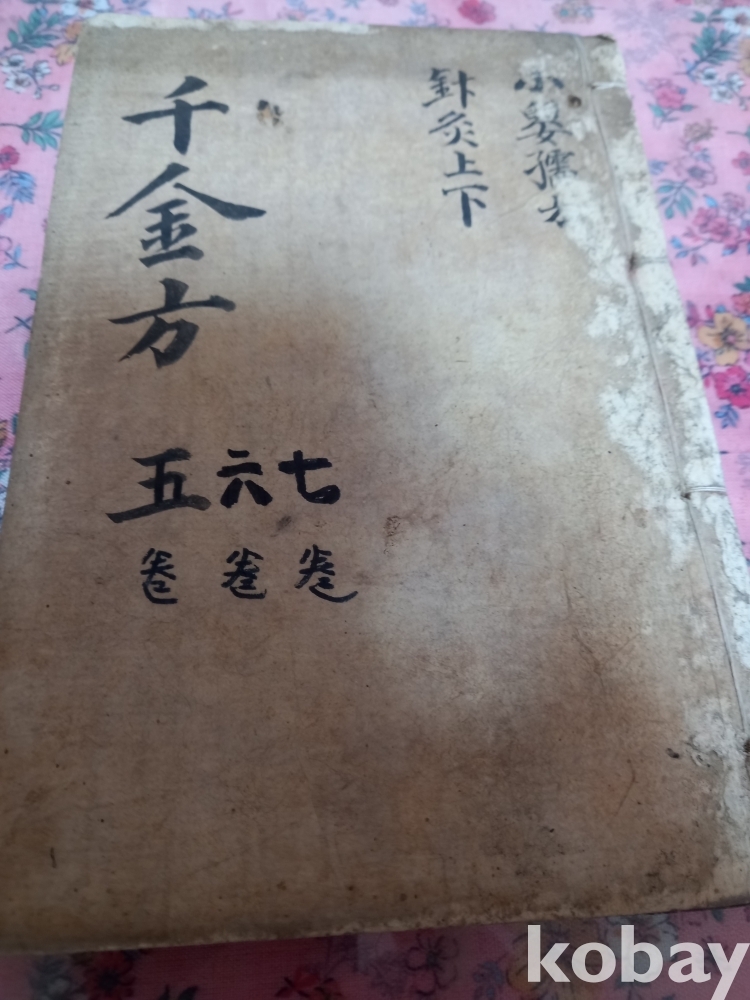 小嬰孺方
針灸上下
千金方
五六七
卷卷卷
kobay